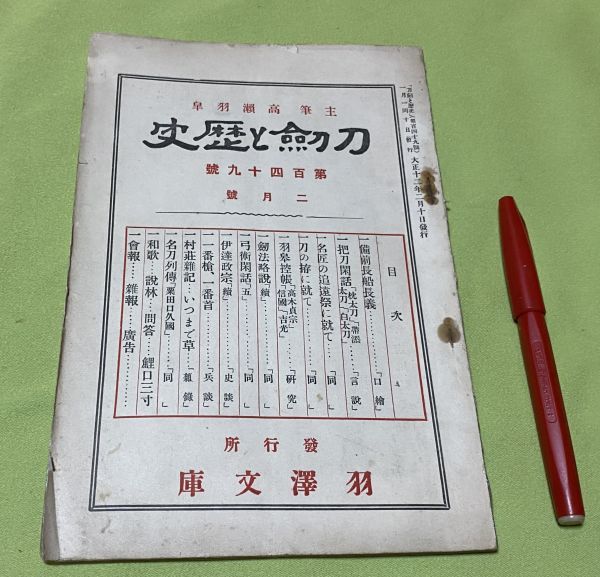 「刀劍と歷史」（第百四十九號） 大正十二年二月十日發行
主筆高瀨羽皐
刀劍と歷史
第百四十九號
二月號
目次
一備前長船長義………「口繪」
一把刀閑話「枕太刀」「帯添太刀」「白太刀」…「言說」
一名匠の追遠祭に就て…「同」
一刀の拵に就て………「同」
一羽皋控帳「高木貞宗」「信國」「吉光」…「硏究」
一劒法略說「續」………「同」
一弓術閑話「五」………「同」
一伊達政宗「續」………「史談」
一一番槍、一番首………「兵談」
一村莊雜記…いつまで草…「雜錄」
一名刀列傳「粟田口久國」…「同」
一和歌…說林…問答…鯉口三寸
一會報……雜報……廣告………
發行所
羽澤文庫